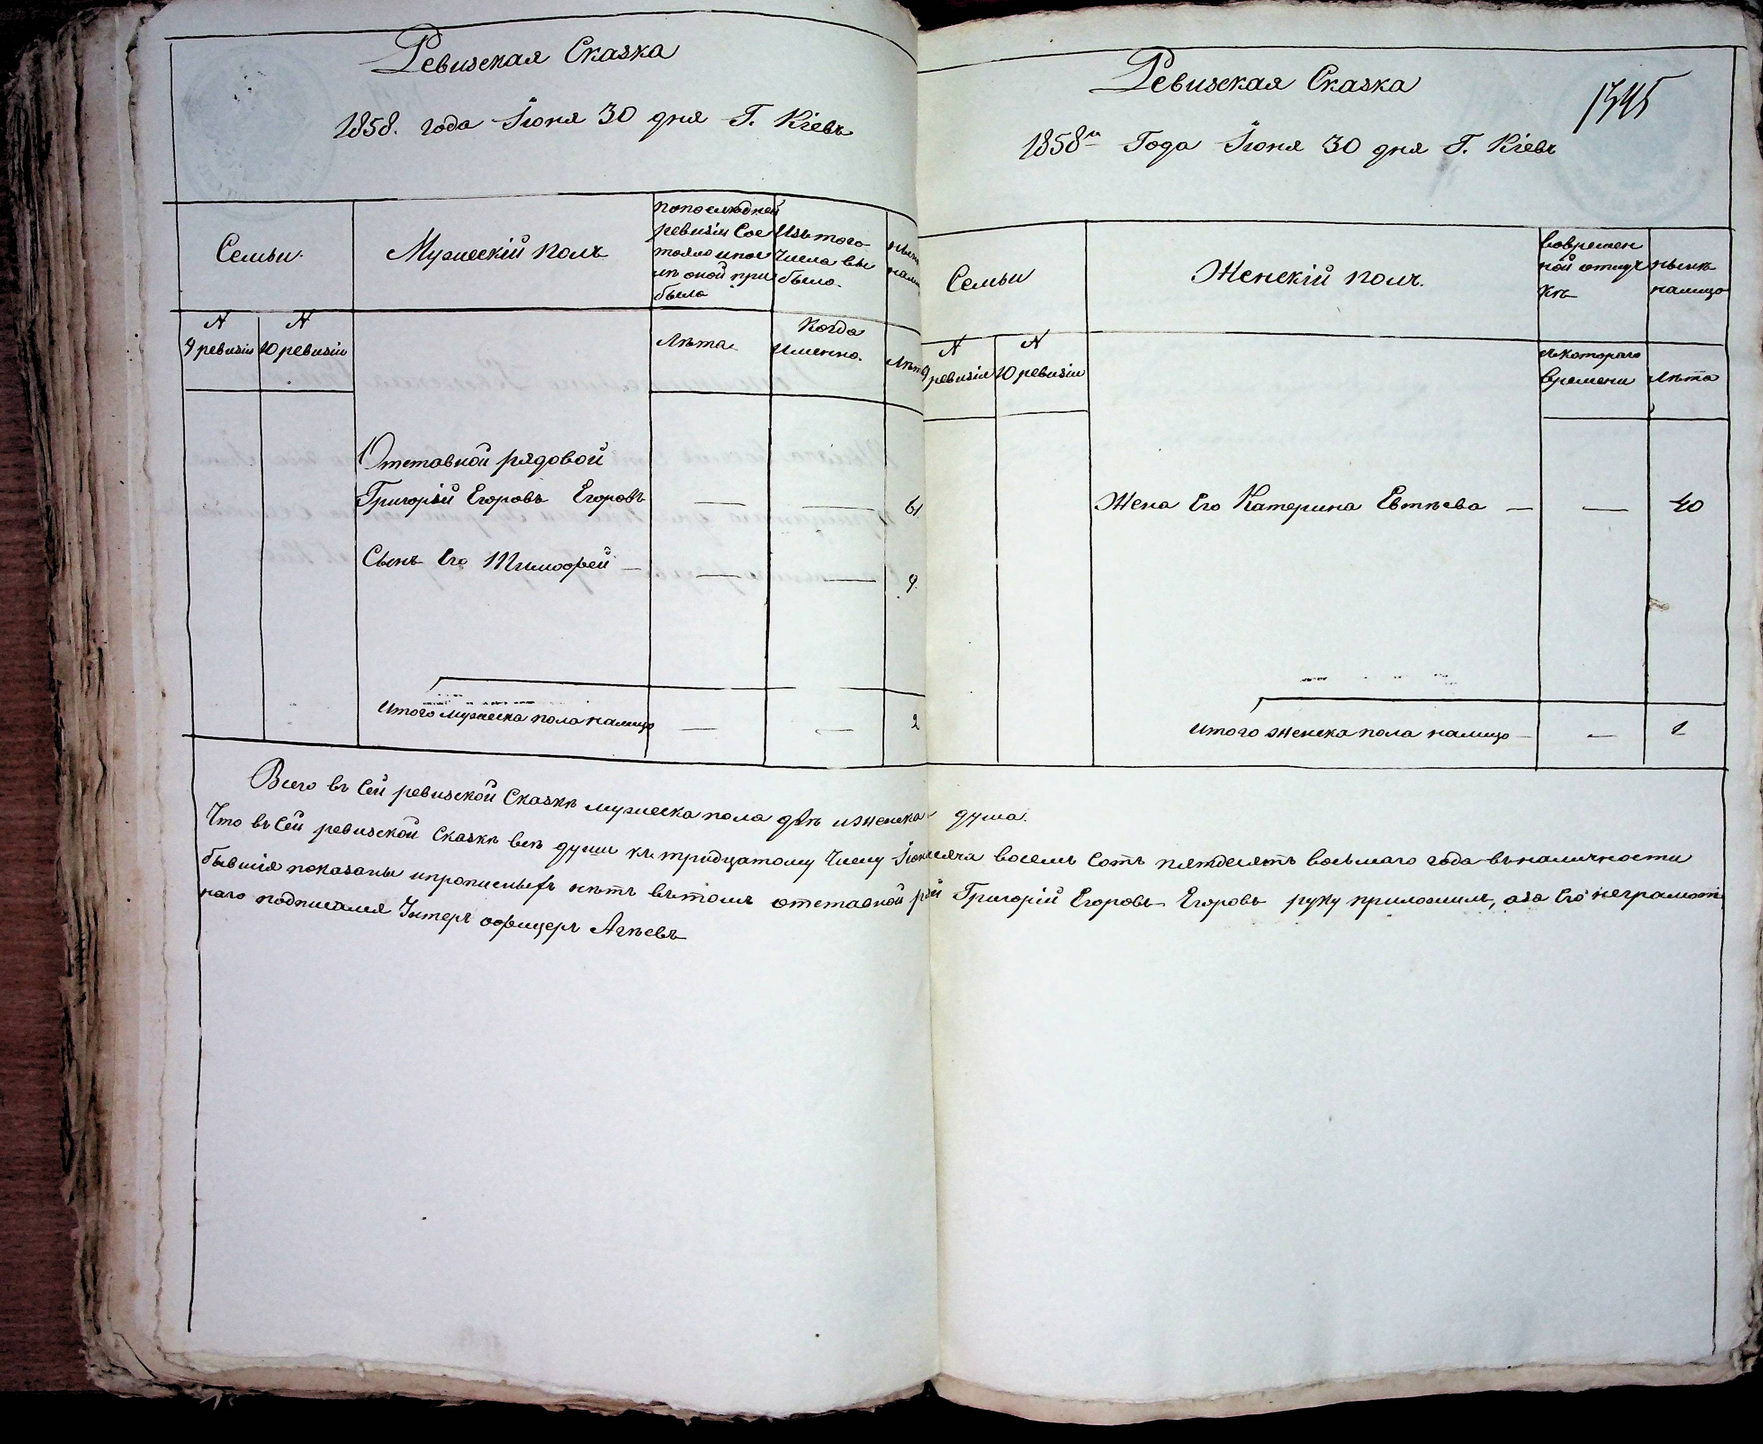 Ревизская Сказка
1858. года Іюня 30 дня Г. Кіевъ
Семьи.
Мужескій полъ
по последней
ревизіи Сос
тояло и пос
лѣ оной при
было
Изъ того
Числа вы
было.
N
9 ревизіи
N
10 ревизіи
Лѣта
Когда
Именно.
Отставной рядовой
Григорій Егоровъ Егоровъ — — 61
Сынъ Его Тимофей — — — 9.
Итого мужеска пола налицо — — 2
Ревизская Сказка
1345
1858го Года Іюня 30 дня Г. Кіевъ
Семьи
Женскій полъ.
Вовремен
ной отлуч
къ
нынѣ
налицо
N
9 ревизія
N
10 ревизіи
съ котораго
Времени
Лѣта
Жена Его Катерина Евтѣева — — 40
Итого женска пола налицо — — 1
Всего въ Сей ревизской Сказкѣ мужеска пола двѣ и женска душа.
Что въ Сей ревизской Сказкѣ всѣ души къ тридцатому Числу восемь Сотъ пятдесятъ восьмаго года въ наличности
бывшія показаны и прописныхъ нѣтъ въ томъ отставной Григорій Егоровъ Егоровъ руку приложилъ, а за Его неграмот
наго подписался Унтеръ офицеръ Агѣевъ